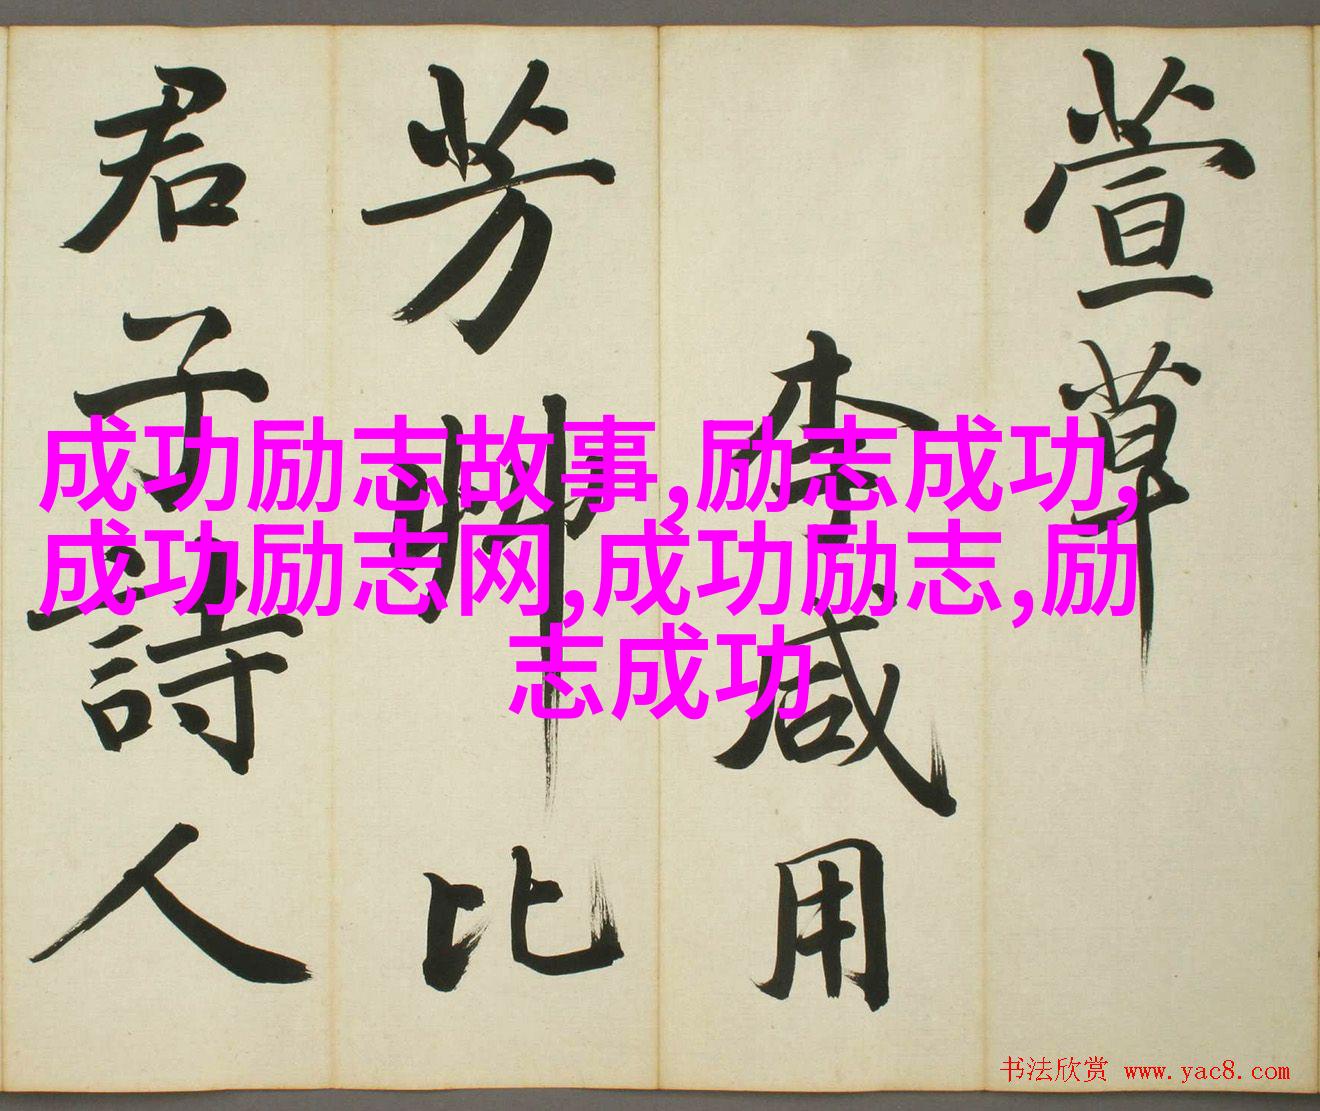 萱草
李咸用
芳艸比
君子詩人
成功励志故事,励志成功,
成功励志网,成功励志,励
志成功
书法欣赏 www.yac8.com